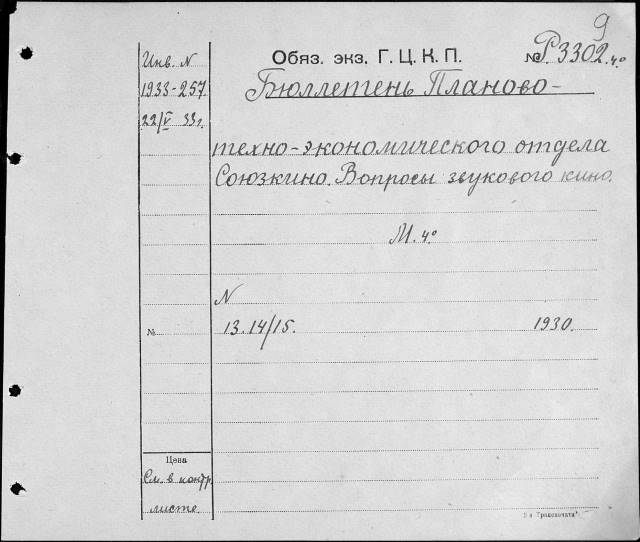 9
Инв. N
Обяз. экз. Г. Ц. К. П.
№ Р3302. 4.°
1933-257
Бюллетень Планово-
22/V 33г.
техно-экономического отдела
Союзкино. Вопросы звукового кино.
М. 4.°
N
№ 13. 14/15. 1930.
Цена
См. в контр.
листе